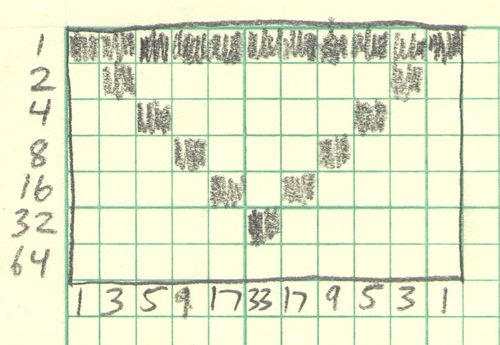 1
2
4
8
16
32
64
1 3 5 9 17 33 17 9 5 3 1